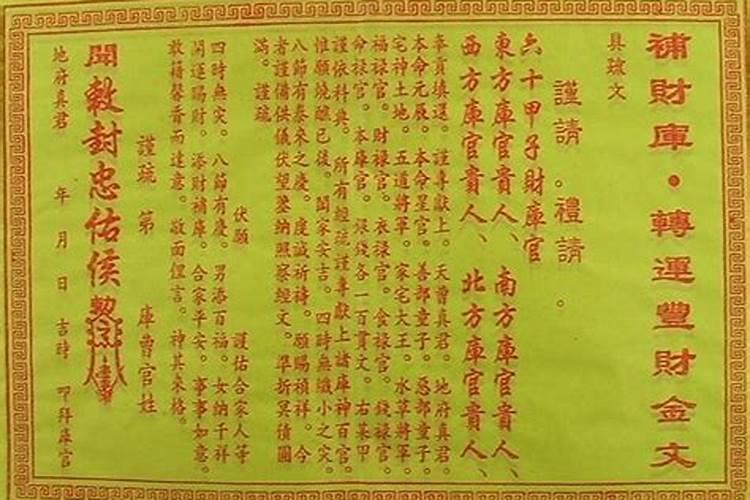 補財庫•轉運豐財金文
具疏文
謹請。禮請。
六十甲子財庫官
東方庫官貴人、南方庫官貴人、
西方庫官貴人、北方庫官貴人、
奉貢填還。謹專獻上。天曹真君。地府真君。
本命元辰。本命星官。善部童子。惡部童子。
宅神土地。五道將軍。家宅大王。水草將軍。
福祿官。財祿官。衣祿官。食祿官。錢祿官。
命祿官。本庫官。銀錢各一百貫文。右某甲
謹依科典。所有經疏謹專獻上諸庫神百官。
惟願燒醮已後。閤家安吉。四時無纖小之灾。
八節有泰來之慶。虔誠祈禱。願賜禎祥。今
者謹備供儀伏望鑒納照察經文。準折冥債圓
滿。謹疏。
伏願 護佑合家人等
四時無灾。八節有慶。男添百福。女納千祥
開運賜財。添財補庫。合家平安。事事如意。
敢藉馨香而達意。敬面俚言。神其來格。
謹疏 第 庫曹官姓
聞敕封忠佑侯
地府真君 年 月 日 吉時 叩拜庫官